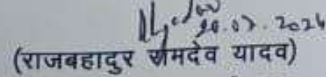 20.07.2024
(राजबहादुर रामदेव यादव)